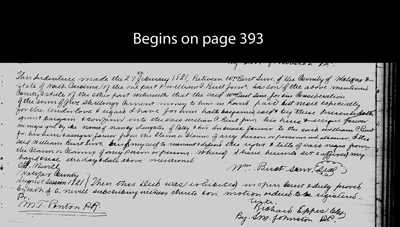 Begins on page 393
This Indenture made the 27 February 1821 Between Wm Burt Senr. of the County of Halifax &
State of North Carolina of the one part & William B Burt Junr. his son of the above mentioned
County & state of the other part witnesseth that the said Wm Burt Senr. for in Consideration
of the sum of five Shillings current money to him in hand paid but most especially
for the tender love & regard I have for him hath bargained sold & by these presents doth
grant bargain & confirm unto the said William B Burt Junr. his heirs & assigns forever
one negro girl by the name of Nancy daughter of Patty & her increase forever to the said William B Burt
for his heirs & assigns forever from the claim & claims of any person or persons whatsoever I the
said William Burt Senr. bind myself to warrant & defend the right & title of said negro from
the claim & claims of any person or persons. Whereof I have hereunto set & affixed my
hand & seal the day & date above mentioned
Wm. Burt Senr. Seal
Halifax County
August Session 1821 Then this Deed was exhibited in open Court & duly proved
by subscribing witness thereto on motion ordered to be registered
Teste
M T Ponton P.R.
Richard Eppes Clk
By J W Johnston D.C.